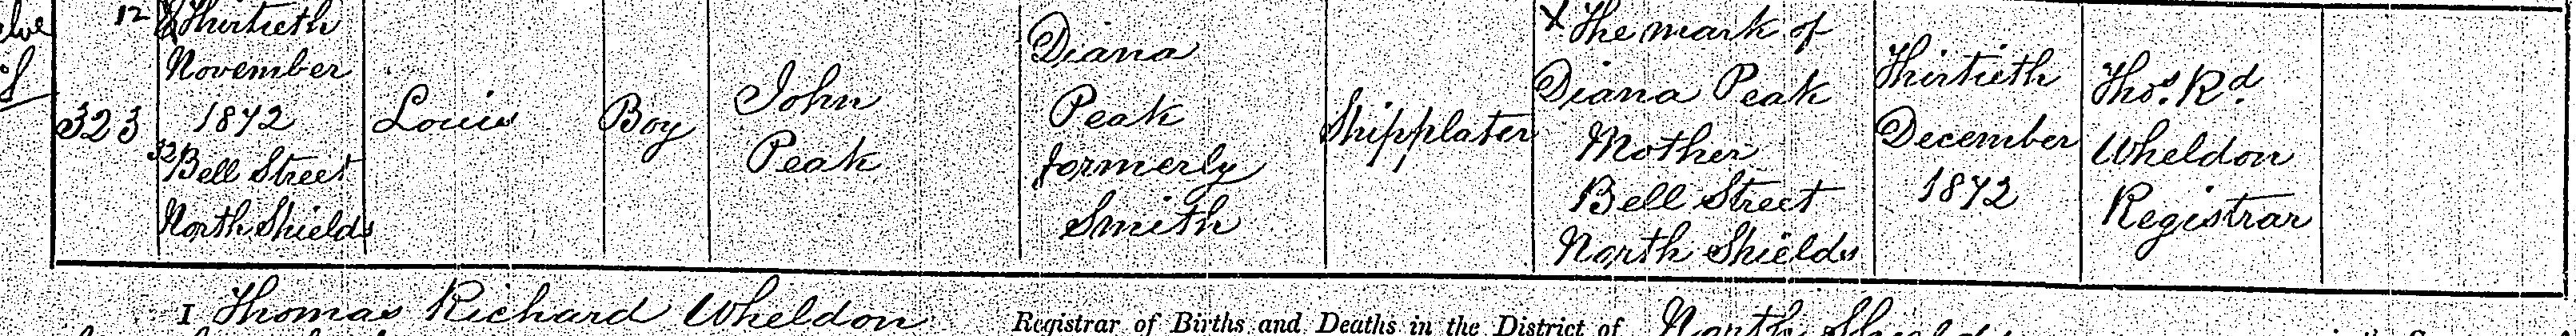 12
Thirtieth
November
1872
32 Bell Street
North Shields
323
Louis
Boy
John
Peak
Diana
Peak
formerly
Smith
Shipplater
X The mark of
Diana Peak
Mother
Bell Street
North Shields
Thirtieth
December
1872
Thos. Rd.
Wheldon
Registrar
I Thomas Richard Wheldon Registrar of Births and Deaths in the District of North Shields